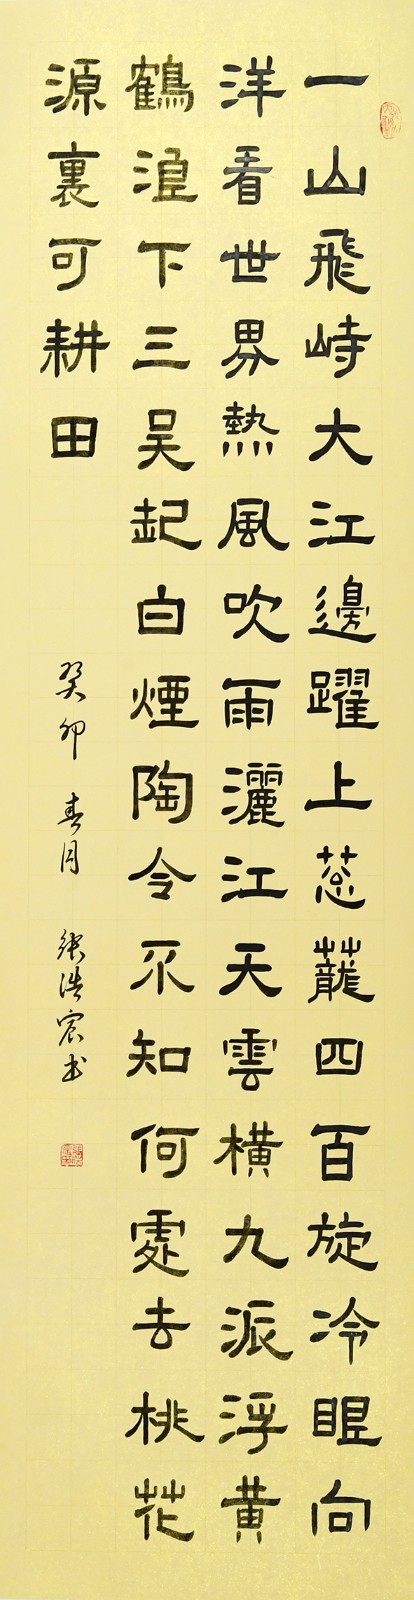 一山飛峙大江邊躍上葱蘢四百旋冷眼向
洋看世界熱風吹雨灑江天雲横九派浮黄
鶴浪下三吴起白煙陶令不知何處去桃花
源裏可耕田
癸卯 春月 張浩宸書